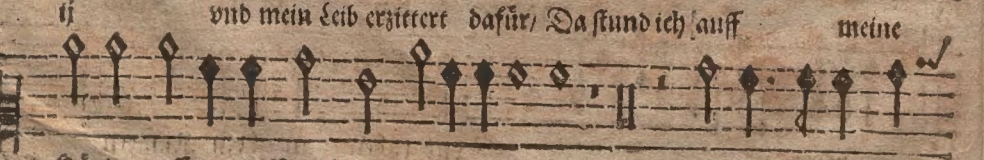 ij vnd mein Leib erzittert dafür/ Da stund ich auff meine